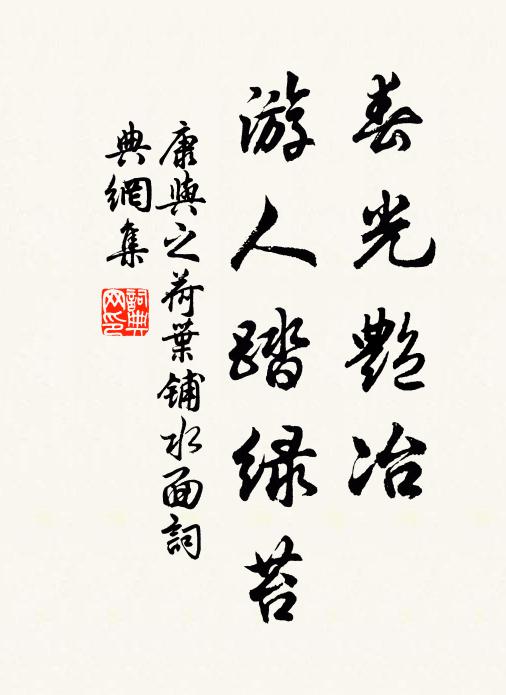 春光艷冶
游人踏绿苔
康與之荷葉铺水面詞
典網集
詞典网印